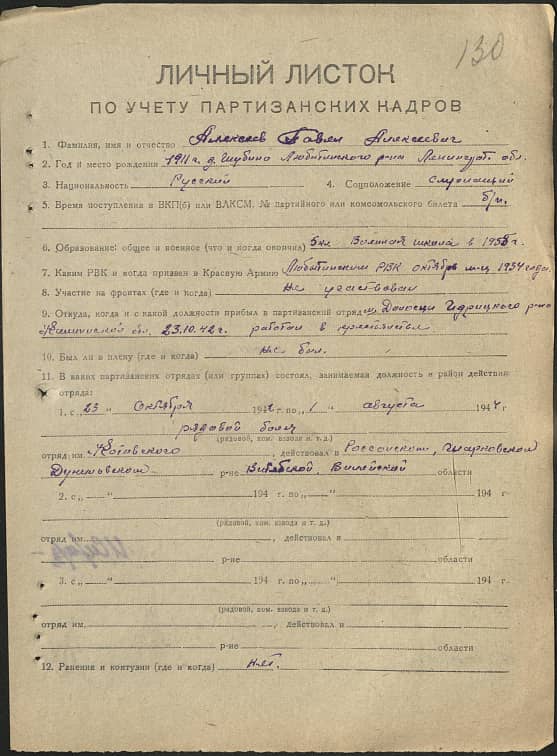 130
ЛИЧНЫЙ ЛИСТОК
ПО УЧЕТУ ПАРТИЗАНСКИХ КАДРОВ
1. Фамилия, имя и отчество Алексеев Павел Алексеевич
2. Год и место рождения 1911 г. д. Глубино Любытинского р-на Ленингр. обл.
3. Национальность Русский 4. Соцположение Служащий
5. Время поступления в ВКП(б) или ВЛКСМ, № партийного или комсомольского билета б/п.
6. Образование: общее и военное (что и когда окончил) 5 кл. Военная школа в 1938 г.
7. Каким РВК и когда призван в Красную Армию Любытинским РВК октябрь м-ц 1934 года
8. Участие на фронтах (где и когда) Не участвовал
9. Откуда, когда и с какой должности прибыл в партизанский отряд Идрицкого р-на
Калининской обл. 23.10.42 г. работал в хозяйстве
10. Был ли в плену (где и когда) не был.
11. В каких партизанских отрядах (или группах) состоял, занимаемая должность и район действия
отряда:
1. с „23 " октября 1942 г. по „1 " августа 1944 г.
рядовой боец
(рядовой, ком. взвода и т. д.)
отряд им. Котовского, действовал в Россонском, Шарковском
Дуниловском р-не Витебской, Вилейской области
2. с „ " 194 г. по „ " 194 г.
(рядовой, ком. взвода и т. д.)
отряд им. , действовал в
р-не области
3. с „ " 194 г. по „ " 194 г.
(рядовой, ком. взвода и т. д.)
отряд им. , действовал в
р-не области
12. Ранения и контузии (где и когда) нет.